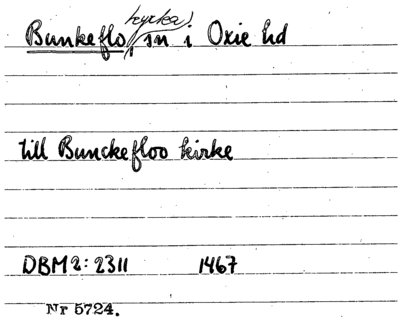 Bunkeflo, sn i Oxie hd
kyrka
till Bunckefloo kirke
DBM 2: 2311 1467
Nr 5724.